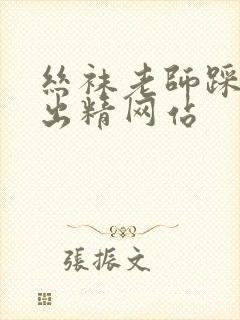 絲袜老師踩
出精网佔
張振文